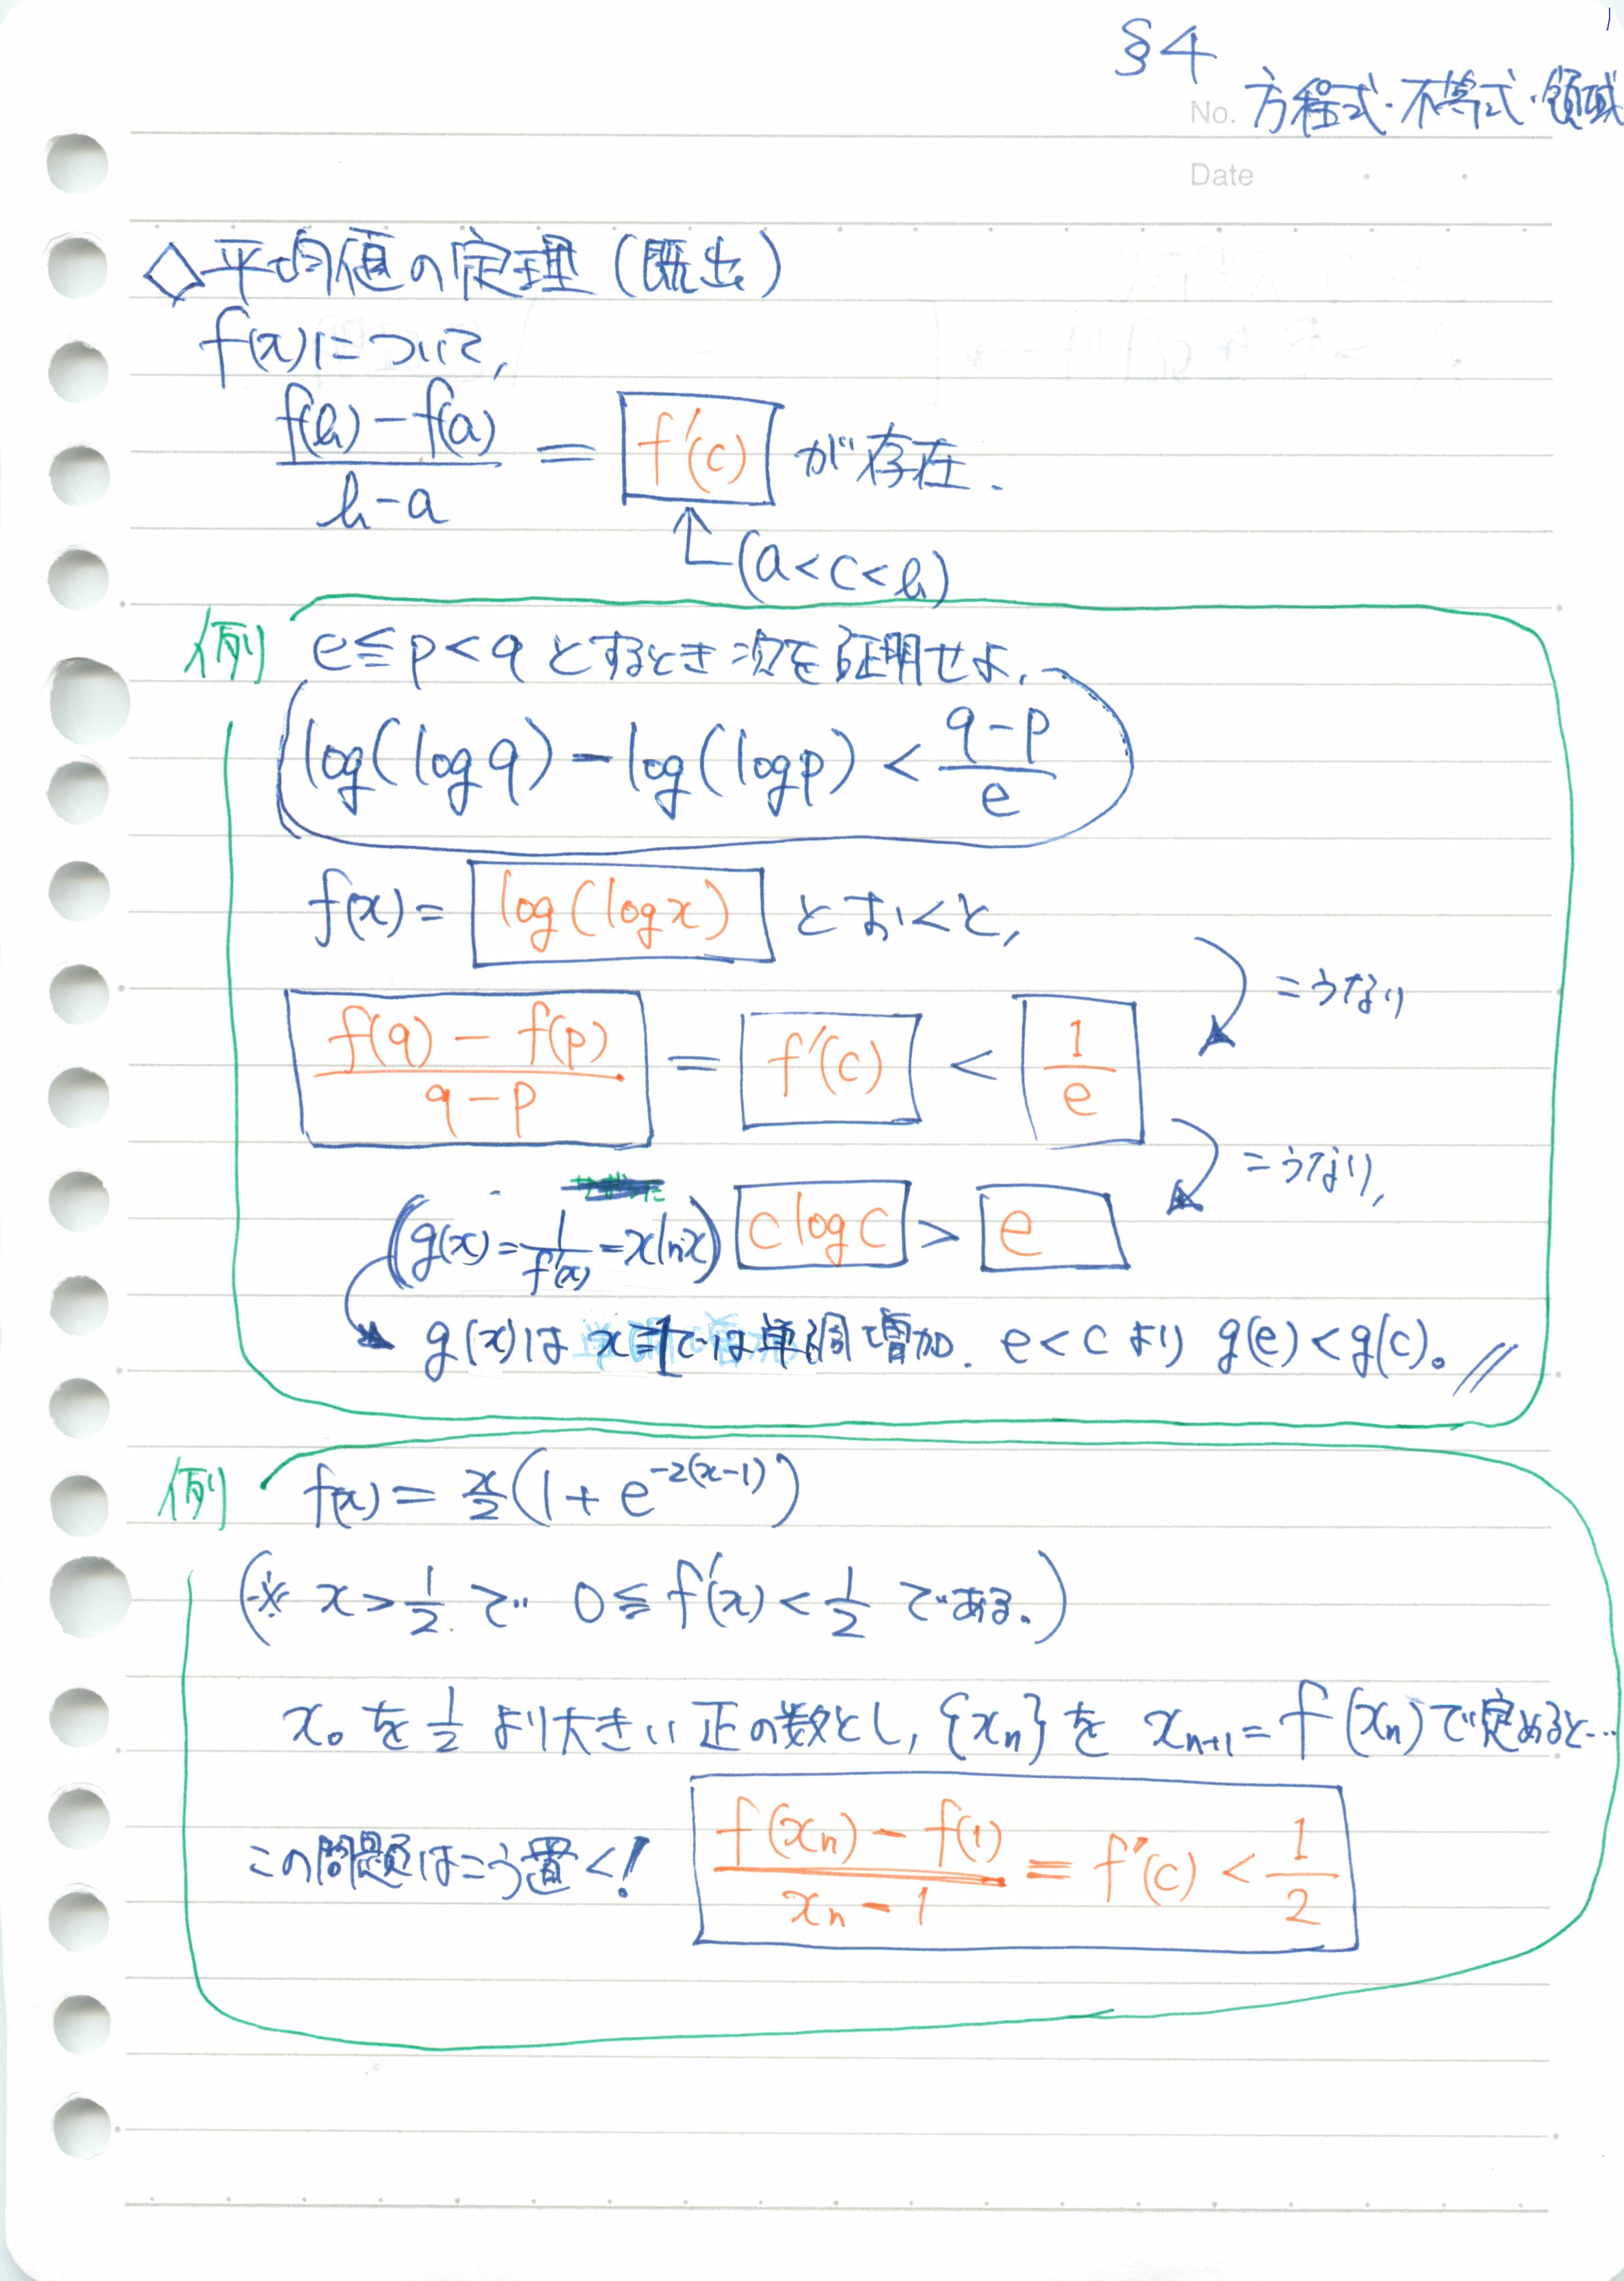 §4
No. 方程式・不等式・領域
Date
◇平均値の定理(既出)
f(x)について,
(f(b)-f(a))/(b-a) = f'(c) が存在.
(a<c<b)
例 e≦p<q とするとき次を証明せよ.
log(log q) - log(log p) < (q-p)/e
f(x) = log(log x) とおくと,
こうなり
(f(q) - f(p))/(q-p) = f'(c) < 1/e
こうなり,
(g(x) = 1/f'(x) = x ln x) c log c > e
g(x)は x≧1では単調増加. e<c より g(e)<g(c)。//
例 f(x) = x/2(1+e^{-2(x-1)})
(※ x>1/2 で 0≦f'(x)<1/2 である。)
x₀を 1/2 より大きい正の数とし, {xₙ}を xₙ₊₁=f(xₙ)で定めると…
この問題はこう置く! (f(xₙ)-f(1))/(xₙ-1) = f'(c) < 1/2